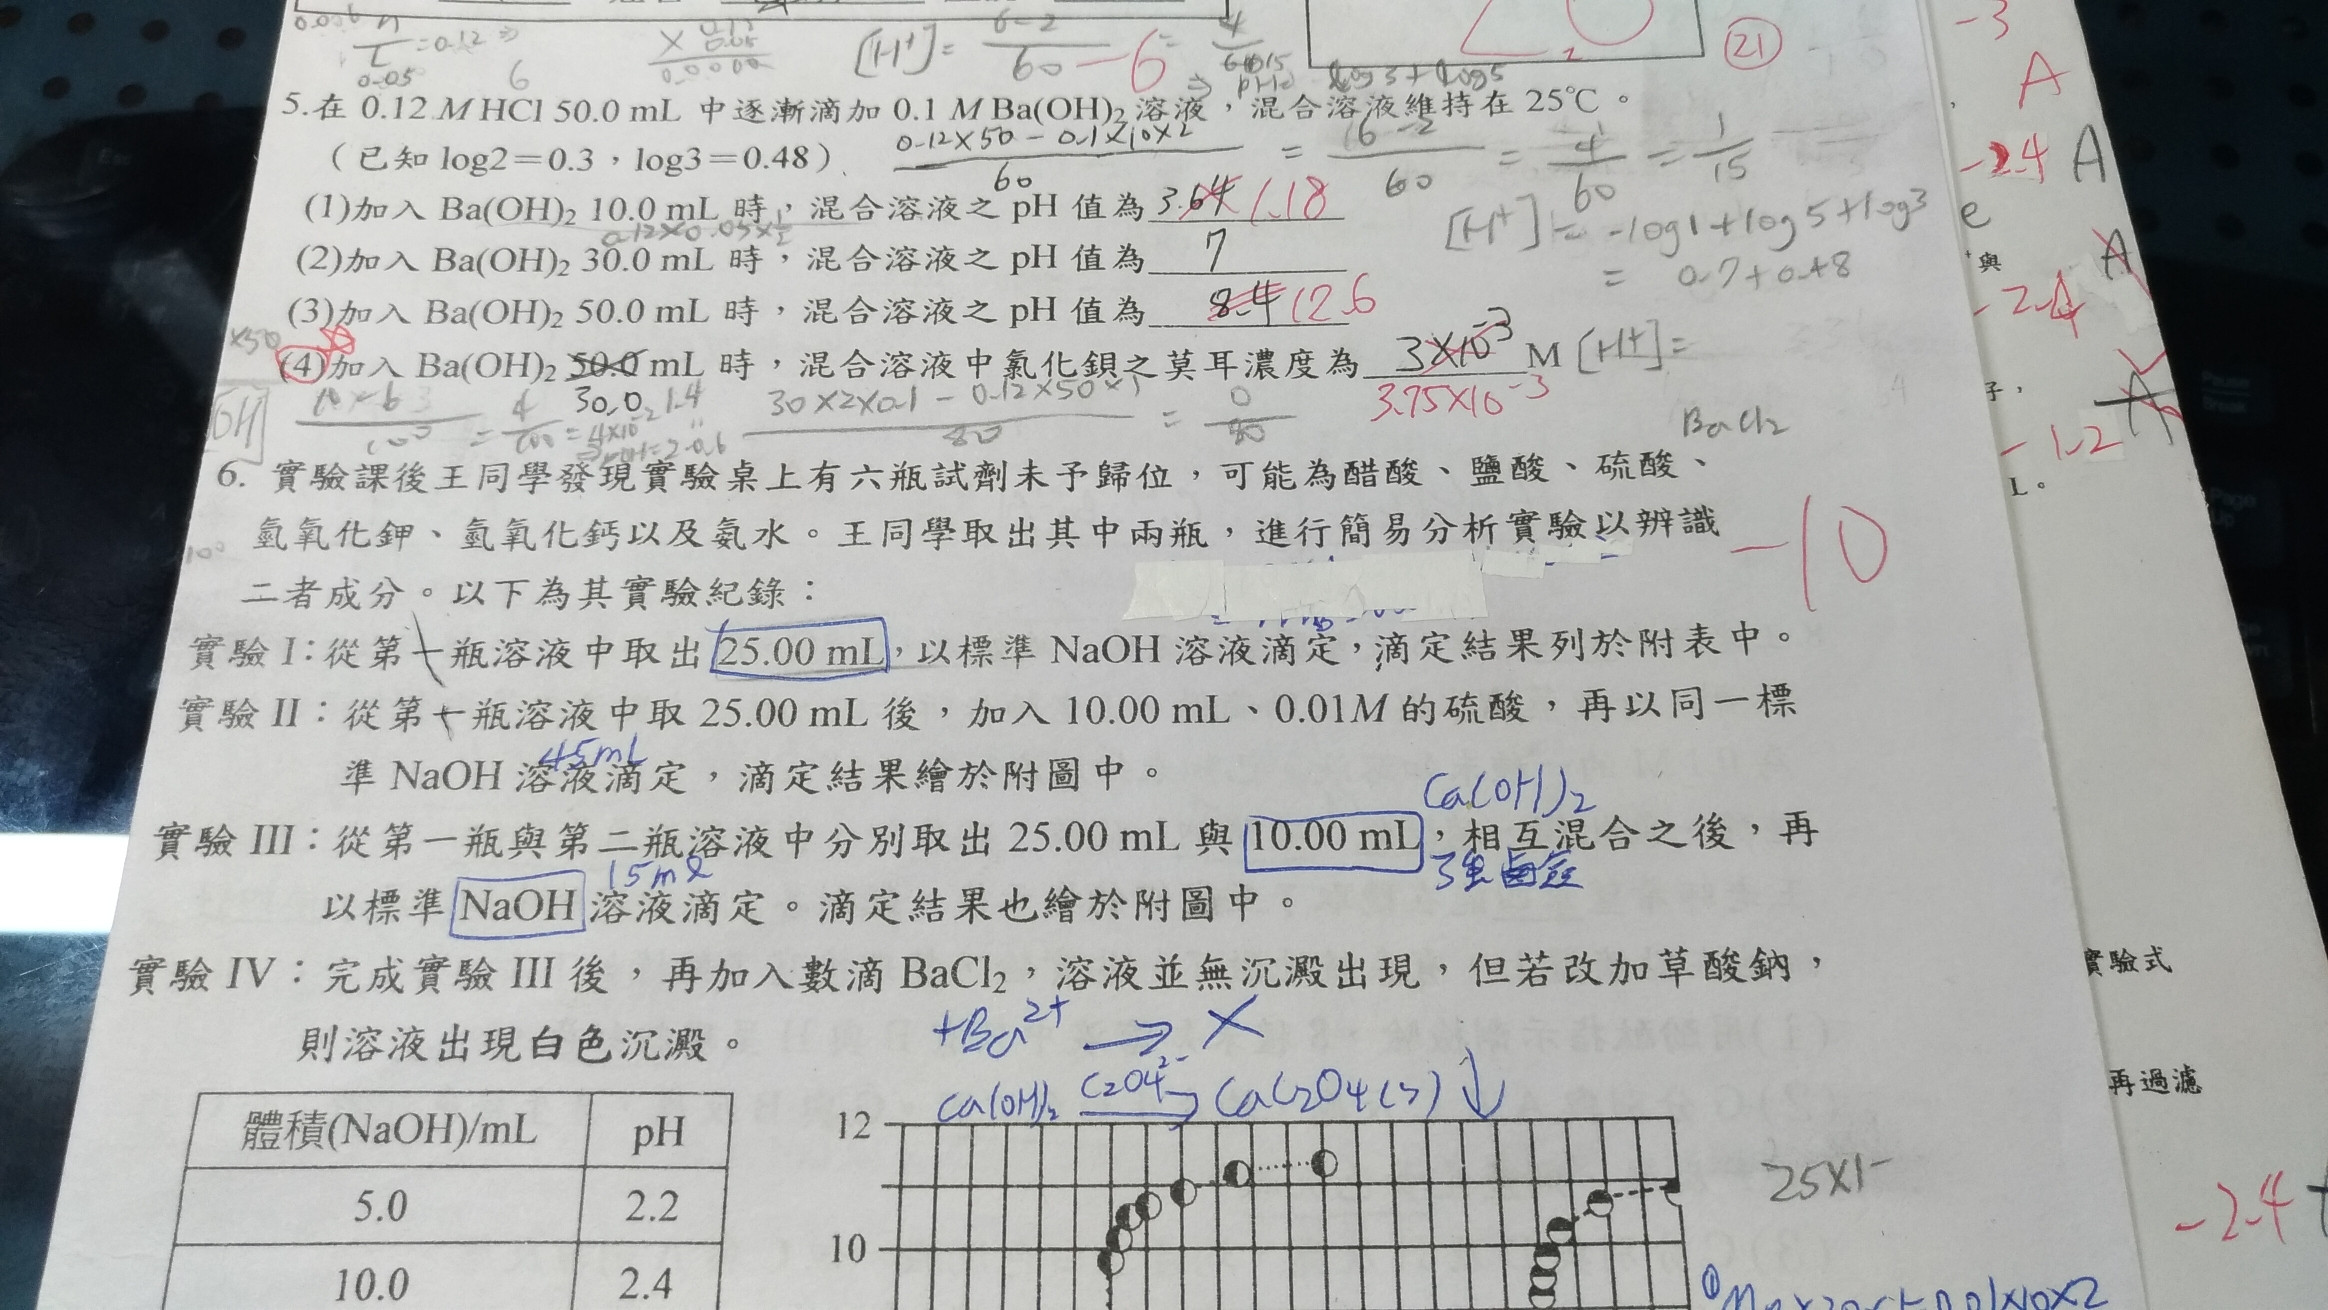 [H⁺]= 6-2/60 = 4/60
-6
log3+log5
21
-3
5.在 0.12 M HCl 50.0 mL 中逐漸滴加 0.1 M Ba(OH)₂ 溶液，混合溶液維持在 25℃。
A
(已知 log2=0.3，log3=0.48)
0.12×50-0.1×10×2/60 = 6-2/60 = 4/60 = 1/15
-2.4 A
(1)加入 Ba(OH)₂ 10.0 mL 時，混合溶液之 pH 值為 3.64 1.18
[H⁺]= -log1+log5+log3
= 0.7+0.48
(2)加入 Ba(OH)₂ 30.0 mL 時，混合溶液之 pH 值為 7
與
A
(3)加入 Ba(OH)₂ 50.0 mL 時，混合溶液之 pH 值為 8.4 12.6
-2.4
×50
(4)加入 Ba(OH)₂ 50.0 mL 時，混合溶液中氯化鋇之莫耳濃度為 3×10⁻³ M [H⁺]=
30.0
3.75×10⁻³
子，
A
[OH] 10-6/100 = 4/100 = 4×10⁻²
30×2×0.1-0.12×50×1/80 = 0/80
BaCl₂
-1.2
L。
6. 實驗課後王同學發現實驗桌上有六瓶試劑未予歸位，可能為醋酸、鹽酸、硫酸、
氫氧化鉀、氫氧化鈣以及氨水。王同學取出其中兩瓶，進行簡易分析實驗以辨識
-10
二者成分。以下為其實驗紀錄：
實驗 I：從第一瓶溶液中取出 25.00 mL，以標準 NaOH 溶液滴定，滴定結果列於附表中。
實驗 II：從第一瓶溶液中取 25.00 mL 後，加入 10.00 mL、0.01M 的硫酸，再以同一標
45mL
準 NaOH 溶液滴定，滴定結果繪於附圖中。
Ca(OH)₂
實驗 III：從第一瓶與第二瓶溶液中分別取出 25.00 mL 與 10.00 mL，相互混合之後，再
15ml
以標準 NaOH 溶液滴定。滴定結果也繪於附圖中。
實驗 IV：完成實驗 III 後，再加入數滴 BaCl₂，溶液並無沉澱出現，但若改加草酸鈉，
實驗式
則溶液出現白色沉澱。
+Ba²⁺ → ×
Ca(OH)₂ C₂O₄²⁻→ CaC₂O₄(s)↓
再過濾
體積(NaOH)/mL pH
12
5.0 2.2
25×1
-2.4
10.0 2.4
10